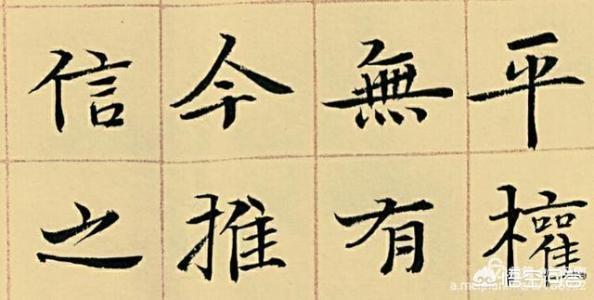 平權
無有
今推
信之
悟空问答